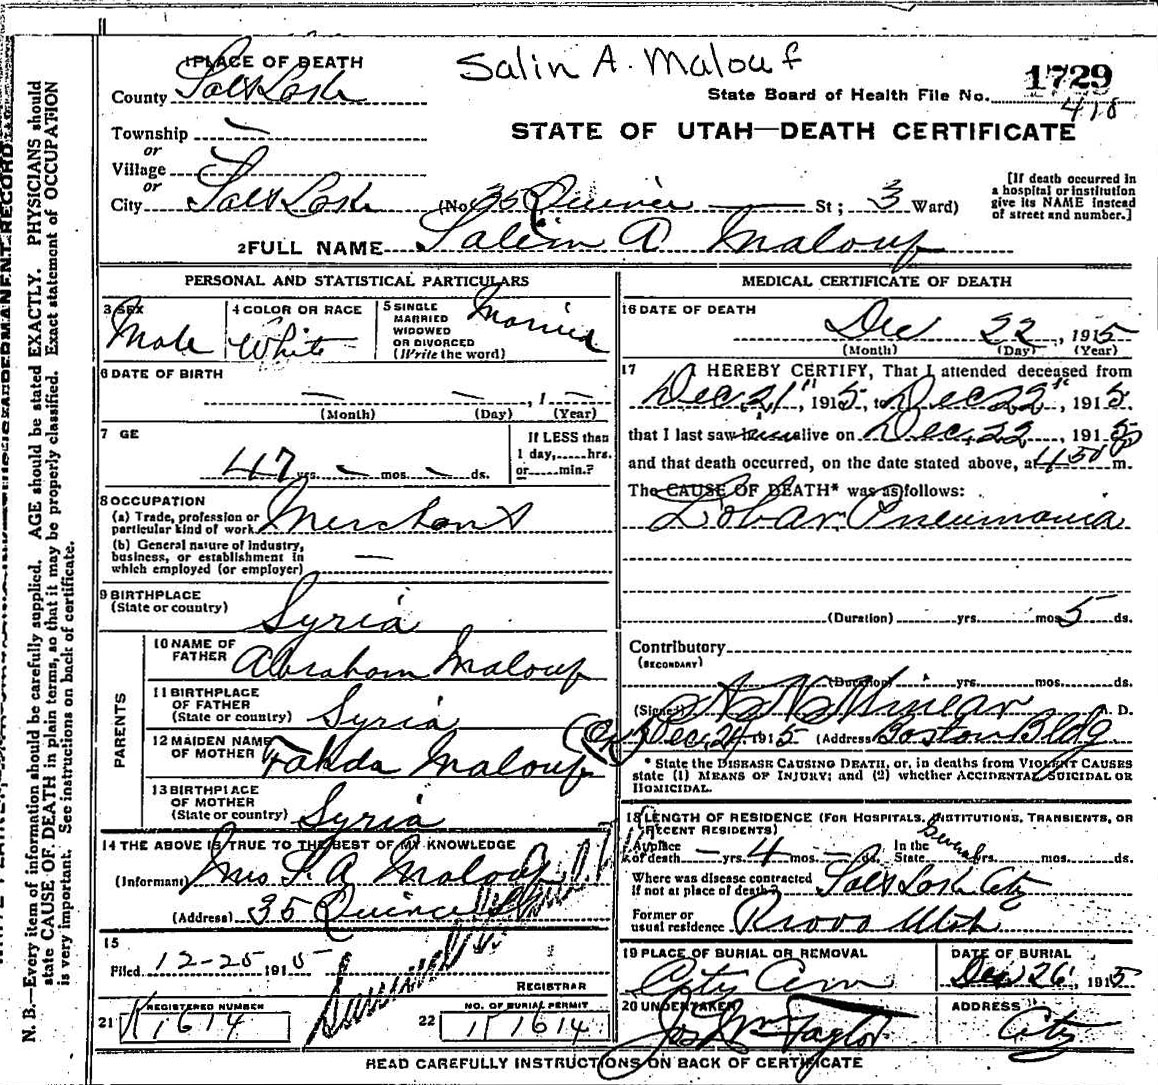 Salin A. Malouf
1 PLACE OF DEATH
County Salt Lake
State Board of Health File No. 1729
418
Township —
or
Village
or
STATE OF UTAH—DEATH CERTIFICATE
City Salt Lake (No. 35 Quince St; 3 Ward)
[If death occurred in
a hospital or institution
give its NAME instead
of street and number.]
2 FULL NAME Salim A Malouf
PERSONAL AND STATISTICAL PARTICULARS
3 SEX
Male
4 COLOR OR RACE
White
5 SINGLE
MARRIED
WIDOWED
OR DIVORCED
(Write the word)
Married
6 DATE OF BIRTH
— — , 1 —
(Month) (Day) (Year)
7 GE
47 yrs. — mos. — ds.
If LESS than
1 day,......hrs.
or......min.?
8 OCCUPATION
(a) Trade, profession or
particular kind of work Merchant
(b) General nature of industry,
business, or establishment in
which employed (or employer) —
9 BIRTHPLACE
(State or country) Syria
PARENTS
10 NAME OF
FATHER Abraham Malouf
11 BIRTHPLACE
OF FATHER
(State or country) Syria
12 MAIDEN NAME
OF MOTHER Fahda Malouf
13 BIRTHPLACE
OF MOTHER
(State or country) Syria
14 THE ABOVE IS TRUE TO THE BEST OF MY KNOWLEDGE
(Informant) Mrs S. A Malouf
(Address) 35 Quince St
15
Filed 12-25 1915
REGISTRAR
REGISTERED NUMBER
21 K1614
NO. OF BURIAL PERMIT
22 1614
MEDICAL CERTIFICATE OF DEATH
16 DATE OF DEATH
Dec 22, 1915
(Month) (Day) (Year)
17 I HEREBY CERTIFY, That I attended deceased from
Dec 21", 1915, to Dec 22", 1915.
that I last saw him alive on Dec, 22, 1915
and that death occurred, on the date stated above, at 450 m.
The CAUSE OF DEATH* was as follows:
Lobar Pneumonia
(Duration) yrs. mos 5 ds.
Contributory
(SECONDARY)
(Duration) yrs. mos. ds.
(Signed) M. D.
Dec, 24 1915 (Address) Boston Bldg
* State the DISEASE CAUSING DEATH, or, in deaths from VIOLENT CAUSES
state (1) MEANS OF INJURY; and (2) whether ACCIDENTAL, SUICIDAL OR
HOMICIDAL.
18 LENGTH OF RESIDENCE (FOR HOSPITALS, INSTITUTIONS, TRANSIENTS, OR
RECENT RESIDENTS)
At place
of death — yrs. 4 mos. — ds. In the
State several yrs. mos. ds.
Where was disease contracted
if not at place of death? Salt Lake City
Former or
usual residence Provo Utah
19 PLACE OF BURIAL OR REMOVAL
City Cem
DATE OF BURIAL
Dec 26, 1915
20 UNDERTAKER
Jos Wm Taylor
ADDRESS
City
HEAD CAREFULLY INSTRUCTIONS ON BACK OF CERTIFICATE
N. B.—Every item of information should be carefully supplied. AGE should be stated EXACTLY. PHYSICIANS should
state CAUSE OF DEATH in plain terms, so that it may be properly classified. Exact statement of OCCUPATION
is very important. See instructions on back of certificate.